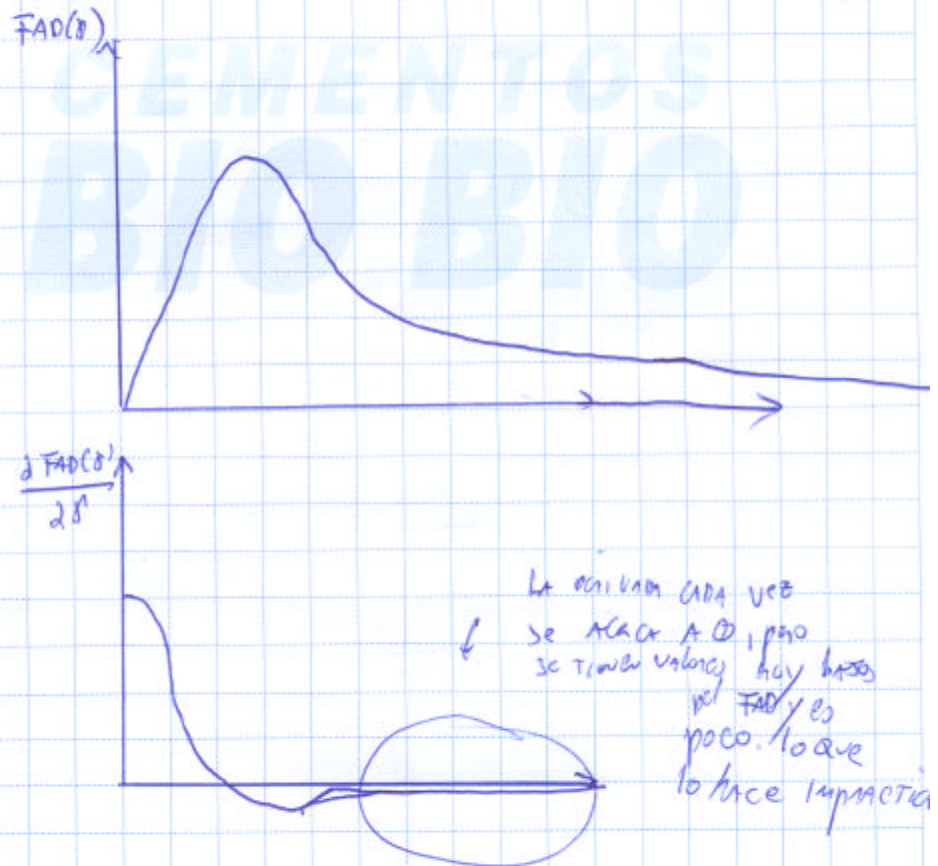 FAD(γ)
CEMENTOS
BIO BIO
∂ FAD(γ)
∂γ
LA DERIVADA CADA VEZ
se ACERCA A 0, pero
se tienen valores muy bajos
del FAD y es
poco. lo que
lo hace impractic